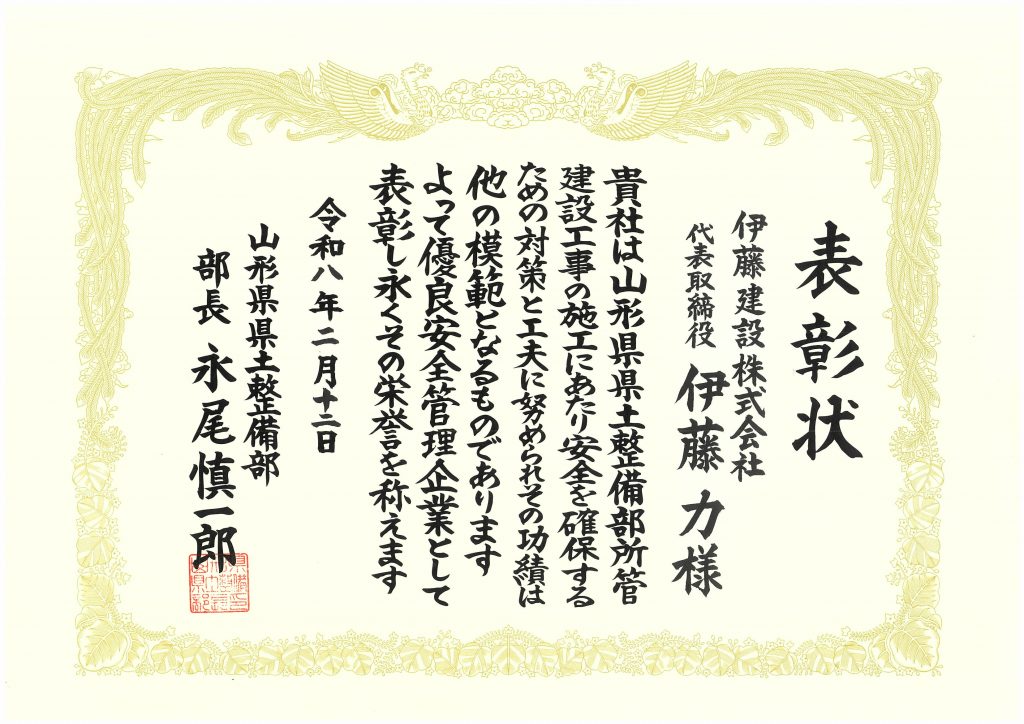 表彰状
伊藤建設株式会社
代表取締役 伊藤 力様
貴社は山形県県土整備部所管
建設工事の施工にあたり安全を確保する
ための対策と工夫に努められその功績は
他の模範となるものであります
よって優良安全管理企業として
表彰し永くその栄誉を称えます
令和八年二月十二日
山形県県土整備部
部長 永尾慎一郎